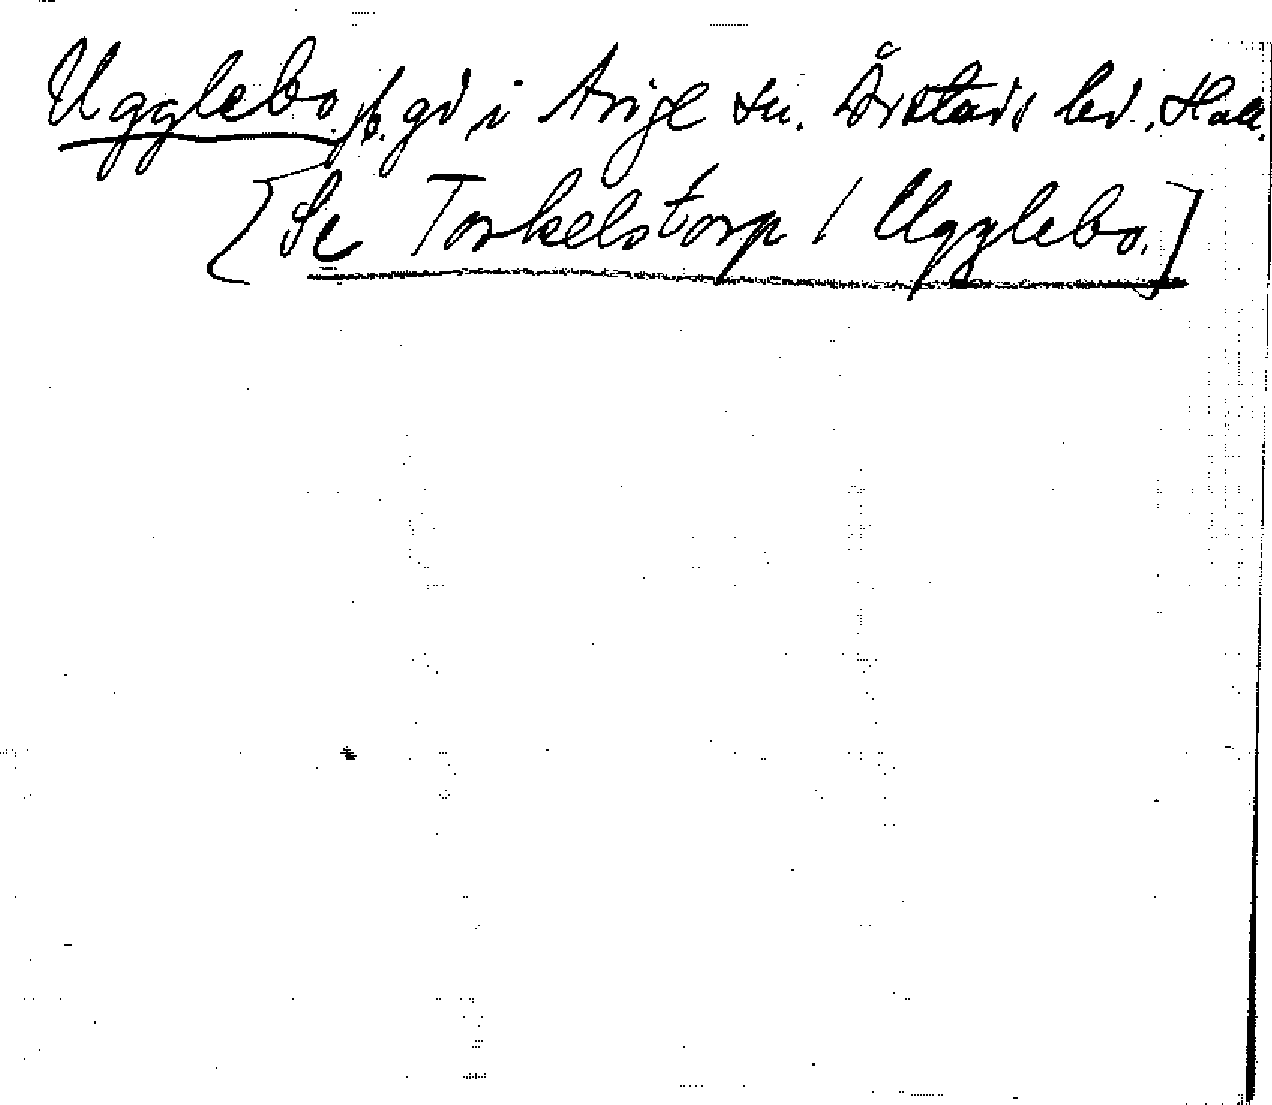 Ugglebo, jb. gd i Årige sn. Årstads hd., Hall.
[Se Torkelstorp / Ugglebo.]